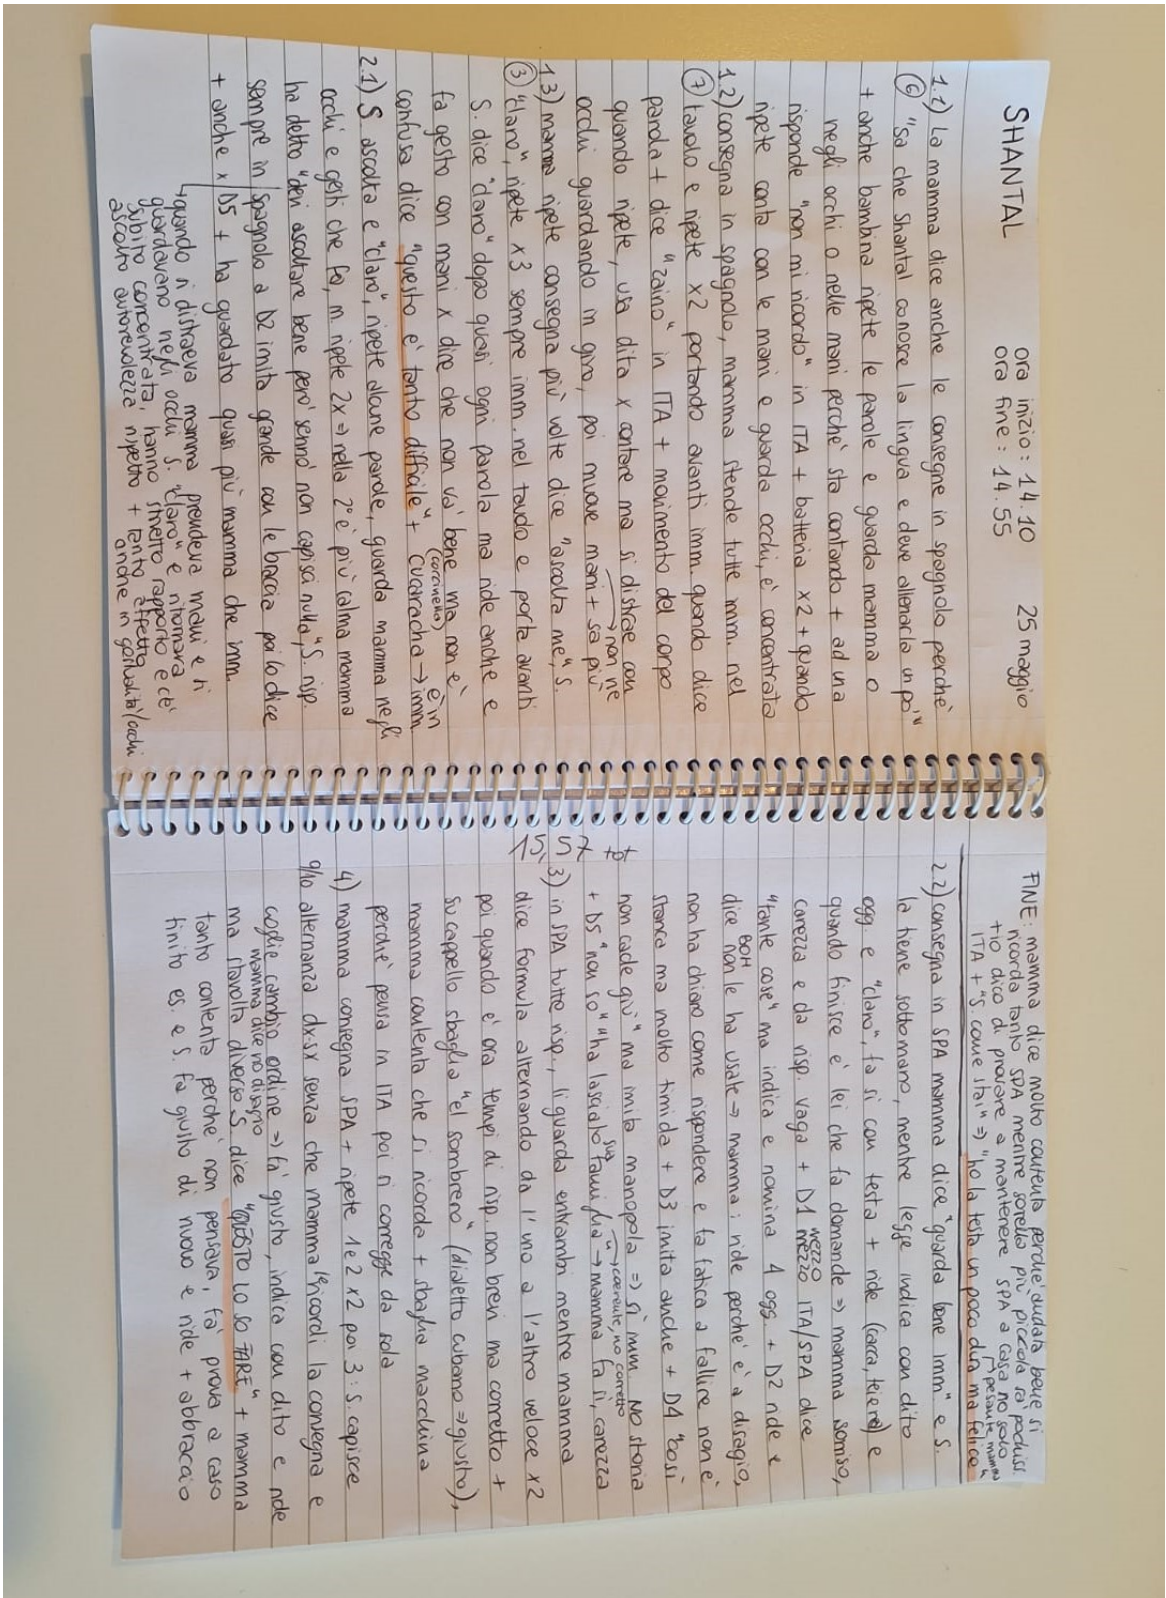 SHANTAL
ora inizio: 14.10 25 maggio
ora fine: 14.55
1.1) La mamma dice anche le consegne in spagnolo perchè
⑥ "sa che Shantal conosce la lingua e deve allenarla un po'"
+ anche bambina ripete le parole e guarda mamma o
negli occhi o nelle mani perchè sta contando + ad una
risponde "non mi ricordo" in ITA + batteria x2 + quando
ripete conta con le mani e guarda occhi, è concentrata
1.2) consegna in spagnolo, mamma stende tutte imm. nel
⑦ tavolo e ripete x2 portando avanti imm. quando dice
parola + dice "zaino" in ITA + movimento del corpo
quando ripete, usa dita x contare ma si distrae con
→ non ne
occhi guardando in giro, poi muove mani + sa più
1.3) mamma ripete consegna più volte dice "ascolta me", S.
③ "claro", ripete x3 sempre imm. nel tavolo e porta avanti
S. dice "claro" dopo quasi ogni parola ma ride anche e
fa gesto con mani x dire che non va bene ma non è
(coccinella) è in
confusa dice "questo è tanto difficile" + cucaracha → imm
2.1) S ascolta e "claro", ripete alcune parole, guarda mamma negli
occhi e gesti che fa, m. ripete 2x ⇒ nella 2° è più calma mamma
ha detto "devi ascoltare bene però sennò non capisci nulla", S. risp.
sempre in spagnolo a D2 imita grande con le braccia poi lo dice
+ anche x D5 + ha guardato quasi più mamma che imm.
quando si distraeva mamma prendeva mani e si
guardavano negli occhi S. "claro" e ritornava
subito concentrata, hanno stretto rapporto e c'è
ascolto autorevolezza rispetto + tanto affetto
anche in gestualità/occhi
FINE: mamma dice molto contenta perchè andata bene si
ricorda tanto SPA mentre sorella più piccola sa pochiss.
+ io dico di provare a mantenere SPA a casa no solo
pesante mamma
ITA + "S. come stai" ⇒ "ho la testa un poco dura ma felice"
2.2) consegna in SPA mamma dice "guarda bene imm" e S.
la tiene sottomano, mentre legge indica con dito
ogg e "claro", fa sì con testa + ride (carca, teiera) e
quando finisce è lei che fa domande ⇒ mamma sorriso,
carezza e da risp. vaga + D1 mezzo ITA/SPA dice
mezzo
"tante cose" ma indica e nomina 4 ogg. + D2 ride e
BOH
dice non le ha usate ⇒ mamma: ride perchè è a disagio,
non ha chiaro come rispondere e fa fatica a fallire non è
stanca ma molto timida + D3 imita anche + D4 "così
non cade giù" ma imita manopola ⇒ sì imm. NO storia
sua → coerente, no corretto
+ D5 "non so" "ha lasciato famiglia" → mamma fa sì, carezza
15,57 tot
3) in SPA tutte risp., li guarda entrambi mentre mamma
dice formula alternando da l'uno a l'altro veloce x2
poi quando è ora tempi di risp. non brevi ma corretto +
su cappello sbaglia "el sombrero" (dialetto cubano ⇒ giusto),
mamma contenta che si ricorda + sbaglia macchina
perchè pensa in ITA poi si corregge da sola
4) mamma consegna SPA + ripete 1 e 2 x2 poi 3: S. capisce
9/10 alternanza dx-sx senza che mamma le ricordi la consegna e
coglie cambio ordine ⇒ fa giusto, indica con dito e ride
mamma dice no disagio
ma stavolta diverso S. dice "QUESTO LO SO FARE" + mamma
tanto contenta perchè non pensava, fa prova a caso
finito es. e S. fa giusto di nuovo e ride + abbraccio